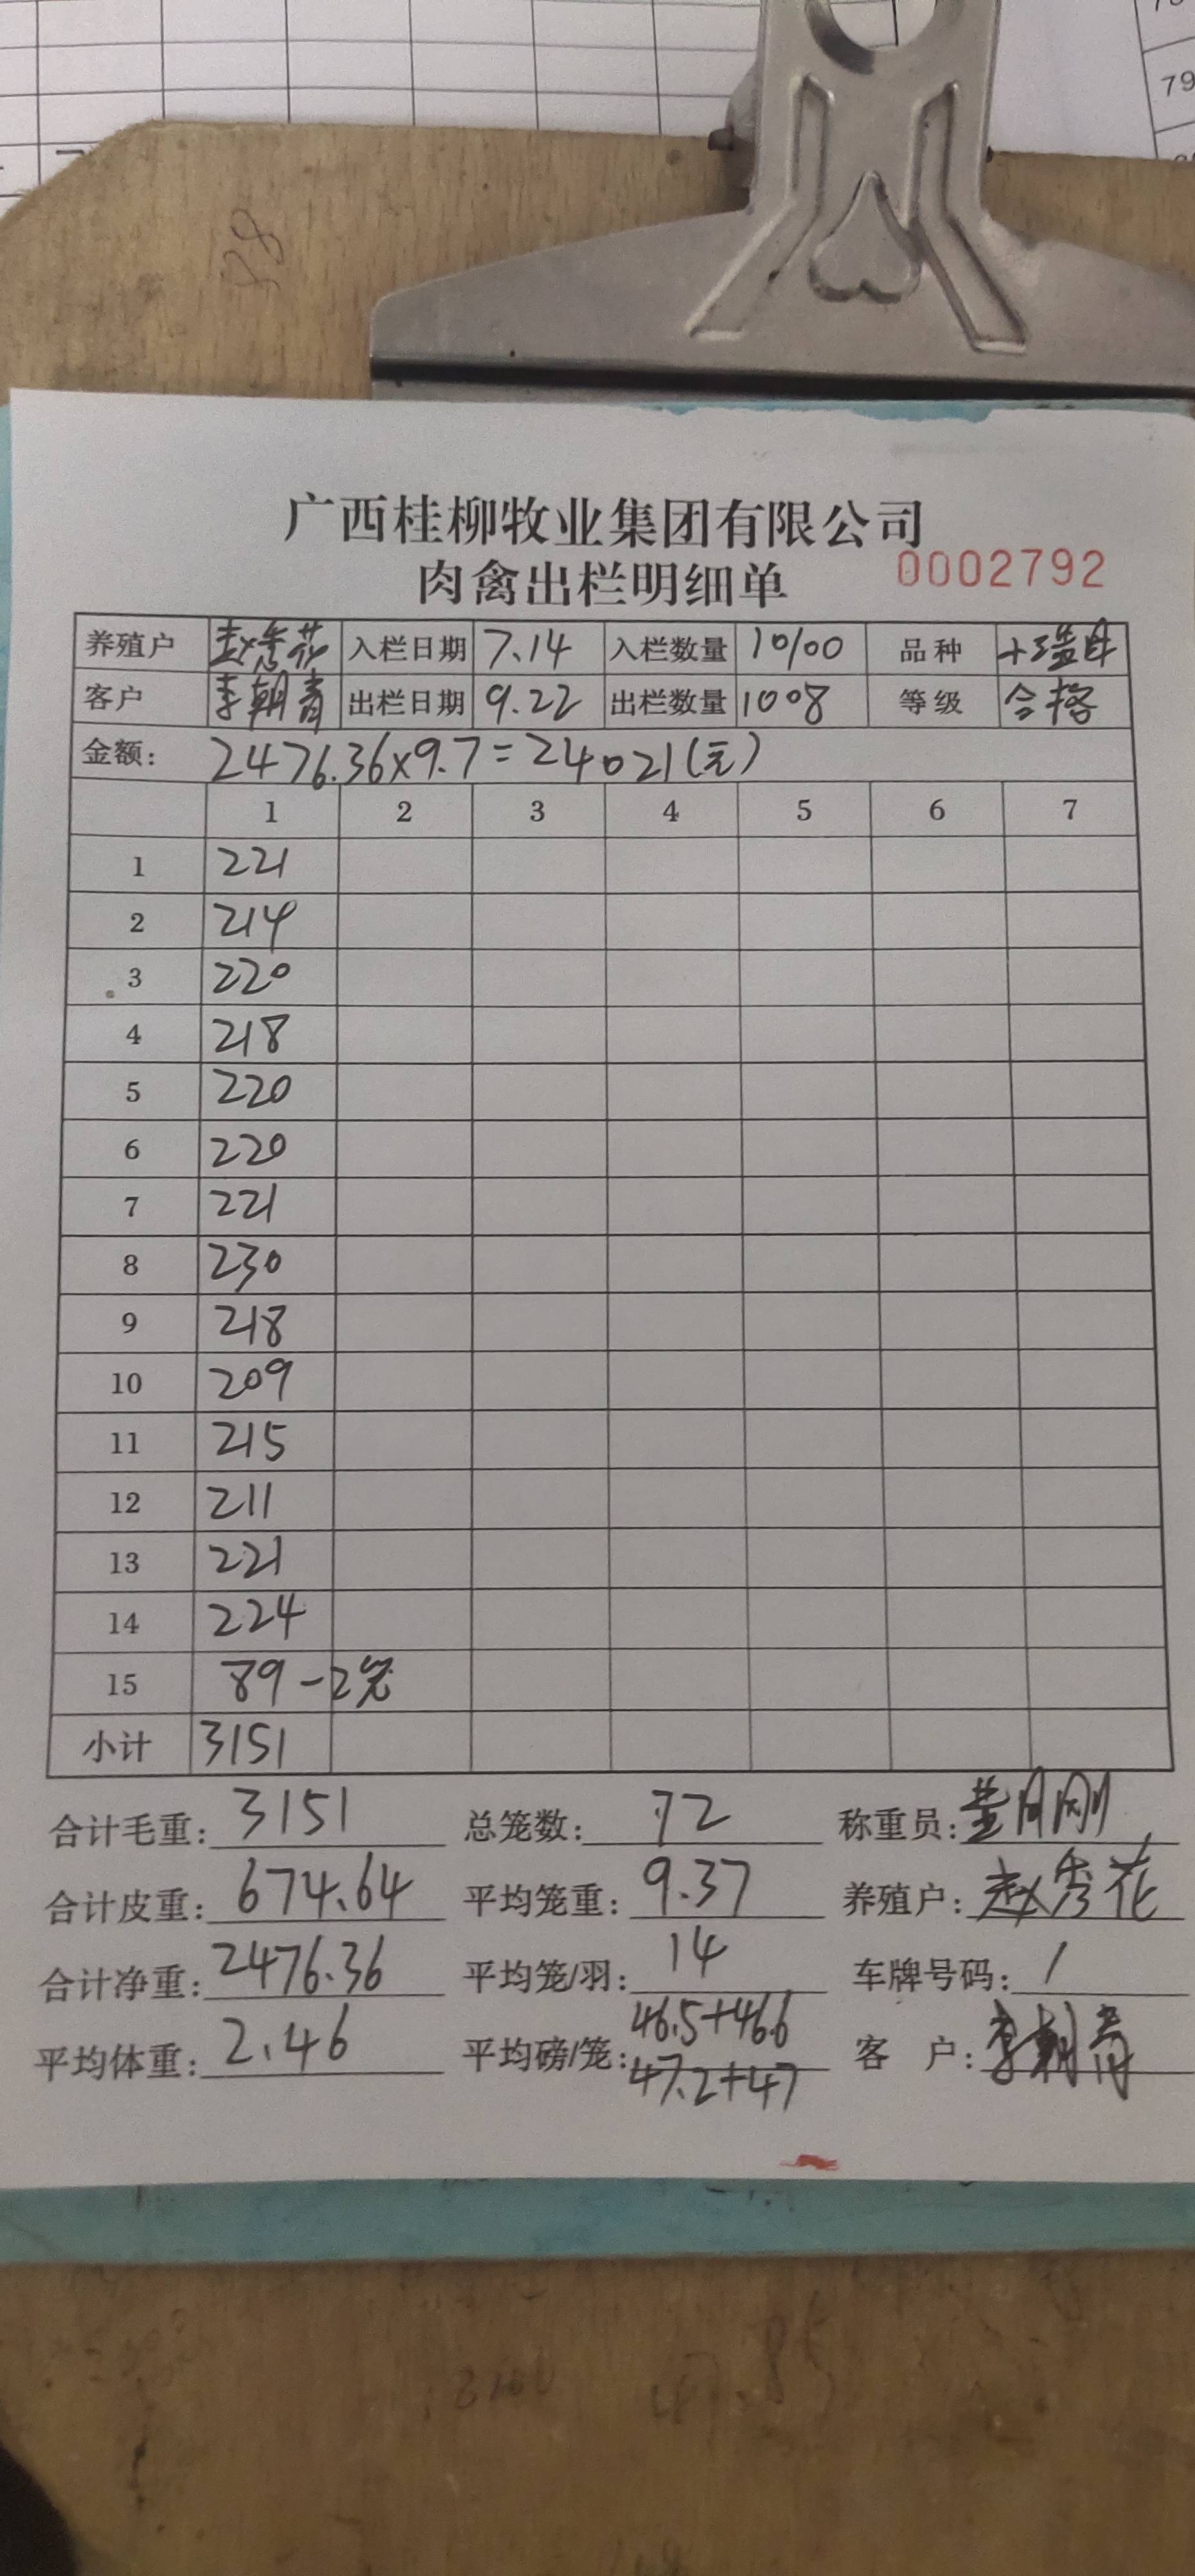 79
广西桂柳牧业集团有限公司
肉禽出栏明细单 0002792
养殖户 赵秀花 入栏日期 7.14 入栏数量 10100 品种
客户 李朝青 出栏日期 9.22 出栏数量 1008 等级 合格
金额: 2476.36×9.7=24021(元)
1 2 3 4 5 6 7
1 221
2 214
3 220
4 218
5 220
6 220
7 221
8 230
9 218
10 209
11 215
12 211
13 221
14 224
15 89-2笼
小计 3151
合计毛重: 3151 总笼数: 72 称重员:
合计皮重: 674.64 平均笼重: 9.37 养殖户: 赵秀花
合计净重: 2476.36 平均笼/羽: 14 车牌号码: /
平均体重: 2.46 平均磅/笼: 46.5+46.6 客 户: 李朝青
47.2+47